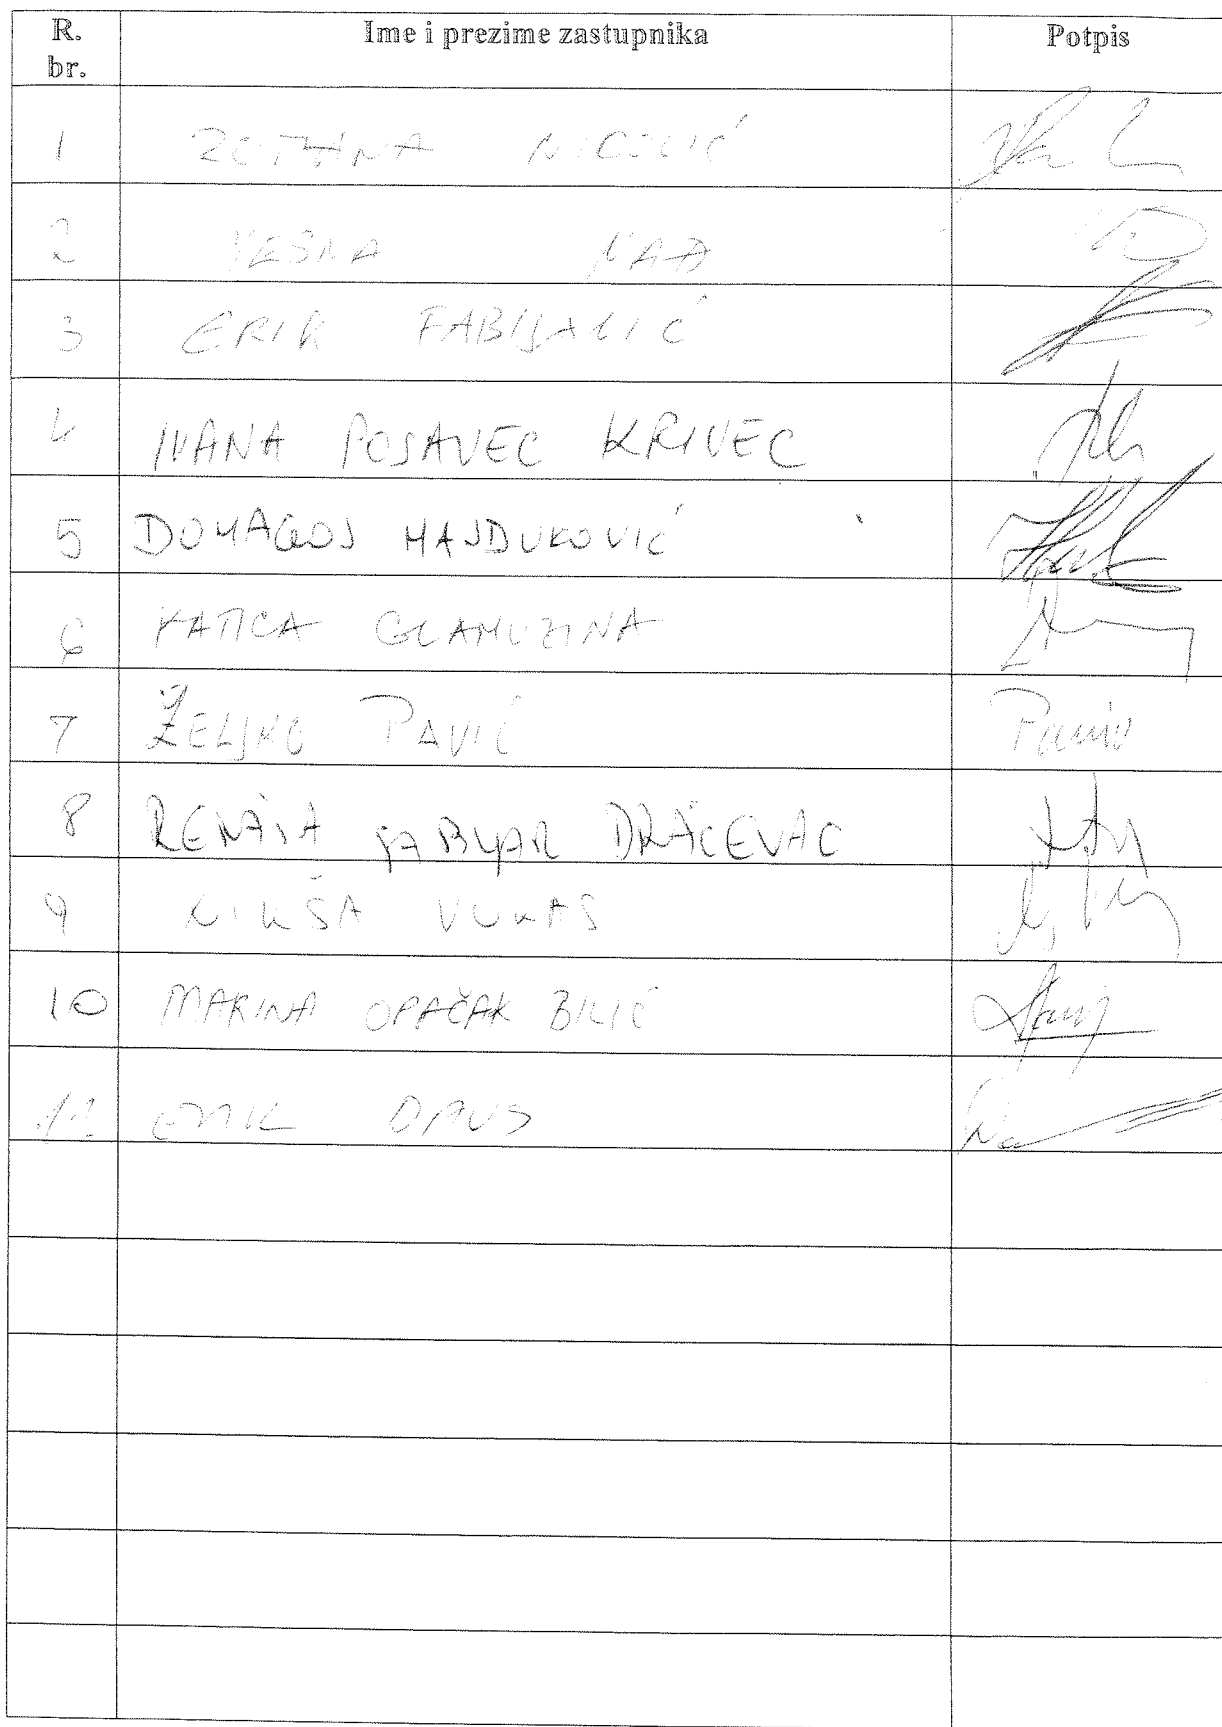 R. br. Ime i prezime zastupnika Potpis
1 ROMANA NIKOLIĆ
2 VESNA NAĐ
3 ERIK FABIJANIĆ
4 IVANA POSAVEC KRIVEC
5 DOMAGOJ HAJDUKOVIĆ
6 KATICA GLAMUZINA
7 ŽELJKO PAVIĆ Pavić
8 DRAČEVAC
9 NIKŠA VUKAS
10 MARINA OPAČAK BILIĆ
11 EMIL DAUS